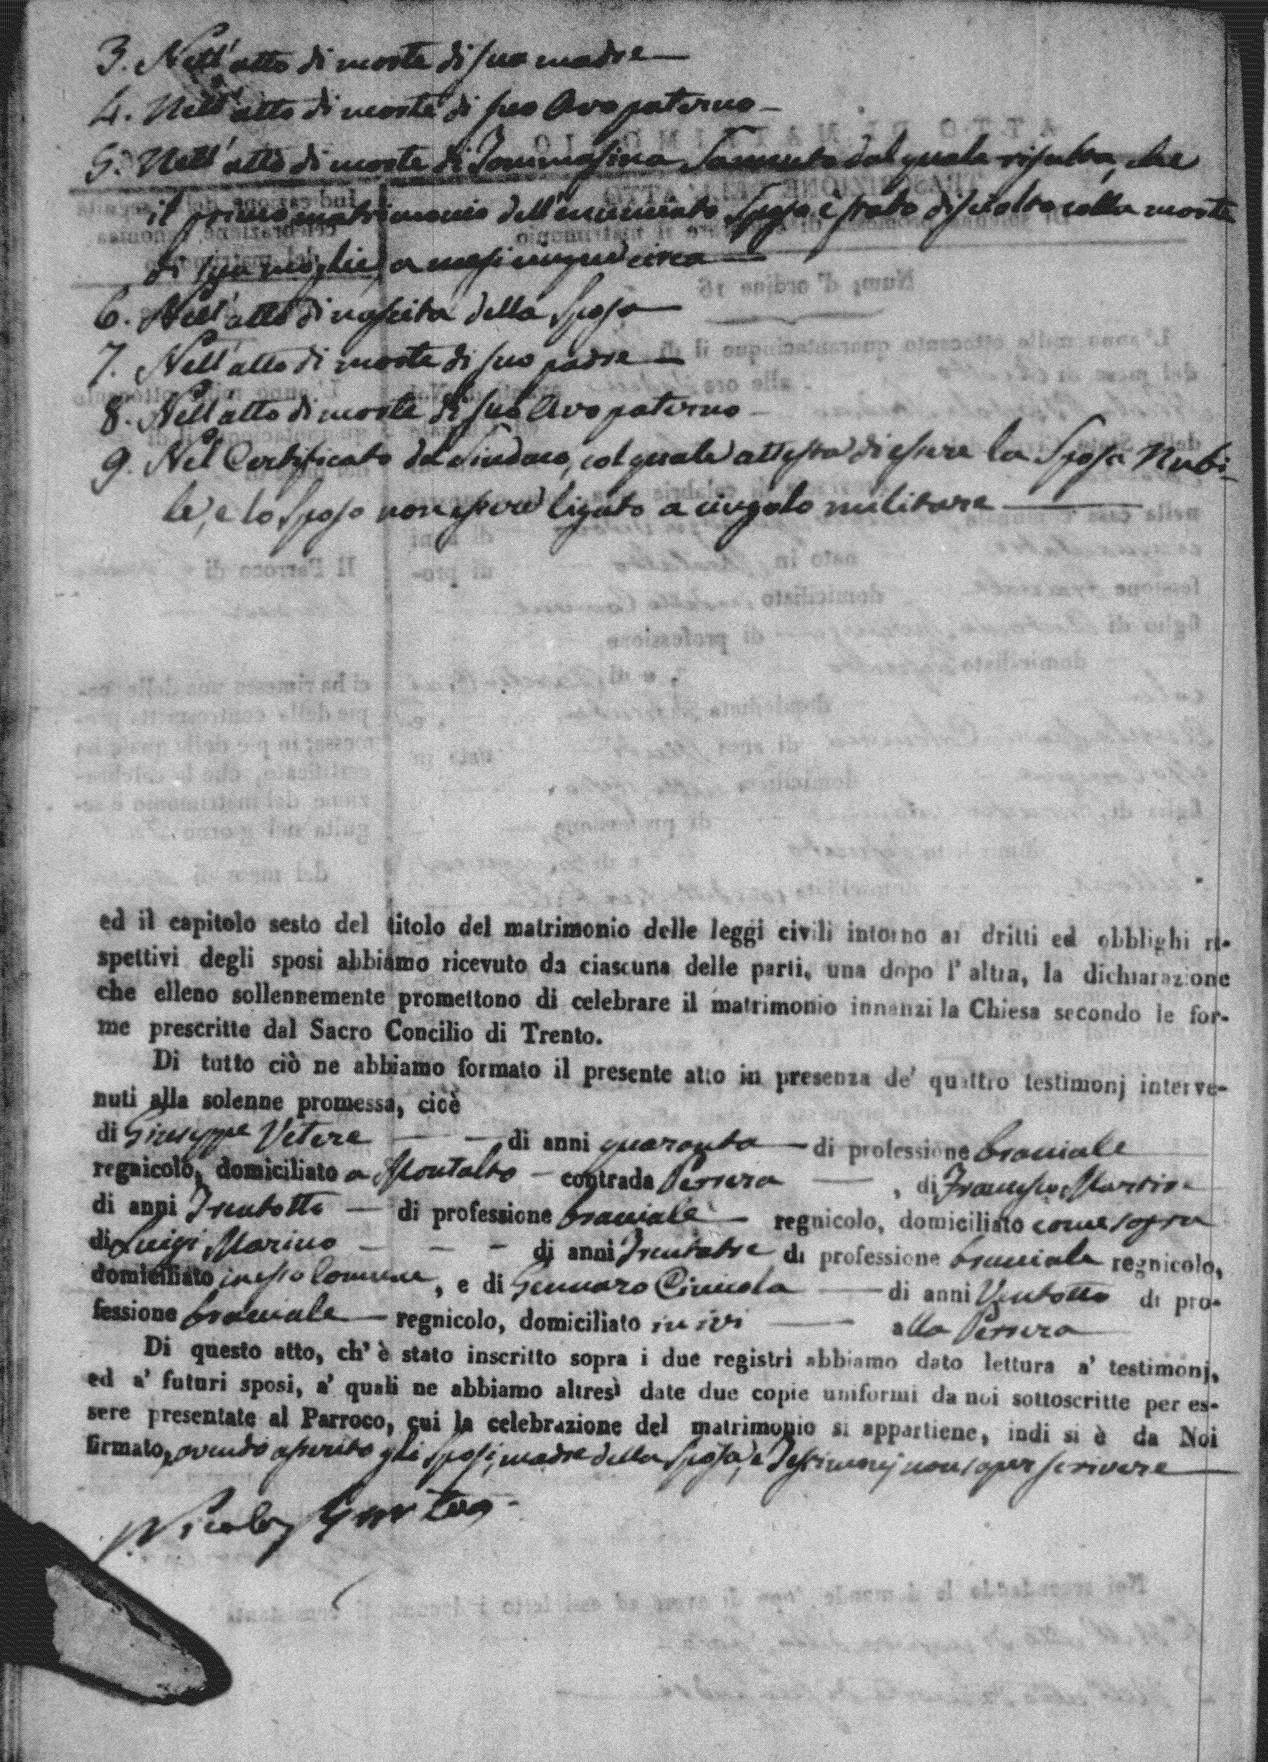 3. Nell'atto di morte di sua madre
4. Nell'atto di morte di suo Avo paterno
5. Nell'atto di morte di Tommasina Sannuto dal quale risulta, che
il primo matrimonio dell'enunciato Sposo è stato disciolto colla morte
di sua moglie, a mesi cinque circa
6. Nell'atto di nascita della Sposa
7. Nell'atto di morte di suo padre
8. Nell'atto di morte di suo Avo paterno
9. Nel Certificato del Sindaco, col quale attesta di essere la Sposa Nubi-
le, e lo Sposo non essere ligato a cingolo militare
ed il capitolo sesto del titolo del matrimonio delle leggi civili intorno ai dritti ed obblighi ri-
spettivi degli sposi abbiamo ricevuto da ciascuna delle parti, una dopo l'altra, la dichiarazione
che elleno sollennemente promettono di celebrare il matrimonio innanzi la Chiesa secondo le for-
me prescritte dal Sacro Concilio di Trento.
Di tutto ciò ne abbiamo formato il presente atto in presenza de' quattro testimonj interve-
nuti alla solenne promessa, cioè
di Giuseppe Vetere di anni quaranta di professione bracciale
regnicolo, domiciliato a Montalto contrada Perrera , di Francesco Martire
di anni Trentotto di professione bracciale regnicolo, domiciliato come sopra
di Luigi Marino di anni Trentatre di professione bracciale regnicolo,
domiciliato in esso Comune, e di Gennaro di anni Ventotto di pro-
fessione bracciale regnicolo, domiciliato in ivi alla Perrera
Di questo atto, ch'è stato inscritto sopra i due registri abbiamo dato lettura a' testimonj,
ed a' futuri sposi, a' quali ne abbiamo altresì date due copie uniformi da noi sottoscritte per es-
sere presentate al Parroco, cui la celebrazione del matrimonio si appartiene, indi si è da Noi
firmato, avendo asserito gli Sposi, madre della Sposa, e Testimonj non saper scrivere
Nicola